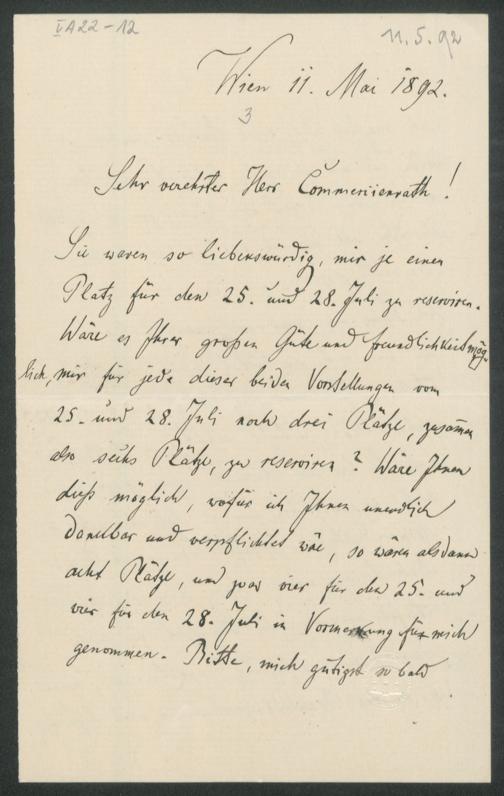 IV A 22-12
11.5.92
Wien 11. Mai 1892.
3
Sehr verehrter Herr Commerzienrath!
Sie waren so liebenswürdig, mir je einen
Platz für den 25. und 28. Juli zu reserviren.
Wäre es Ihrer großen Güte und Freundlichkeit mög-
lich, mir für jede dieser beiden Vorstellungen vom
25. und 28. Juli noch drei Plätze, zusammen
also sechs Plätze, zu reserviren? Wäre Ihnen
dieß möglich, wofür ich Ihnen unendlich
dankbar und verpflichtet wäre, so wären alsdann
acht Plätze, und zwar vier für den 25. und
vier für den 28. Juli in Vormerkung für mich
genommen. Bitte, mich gütigst so bald